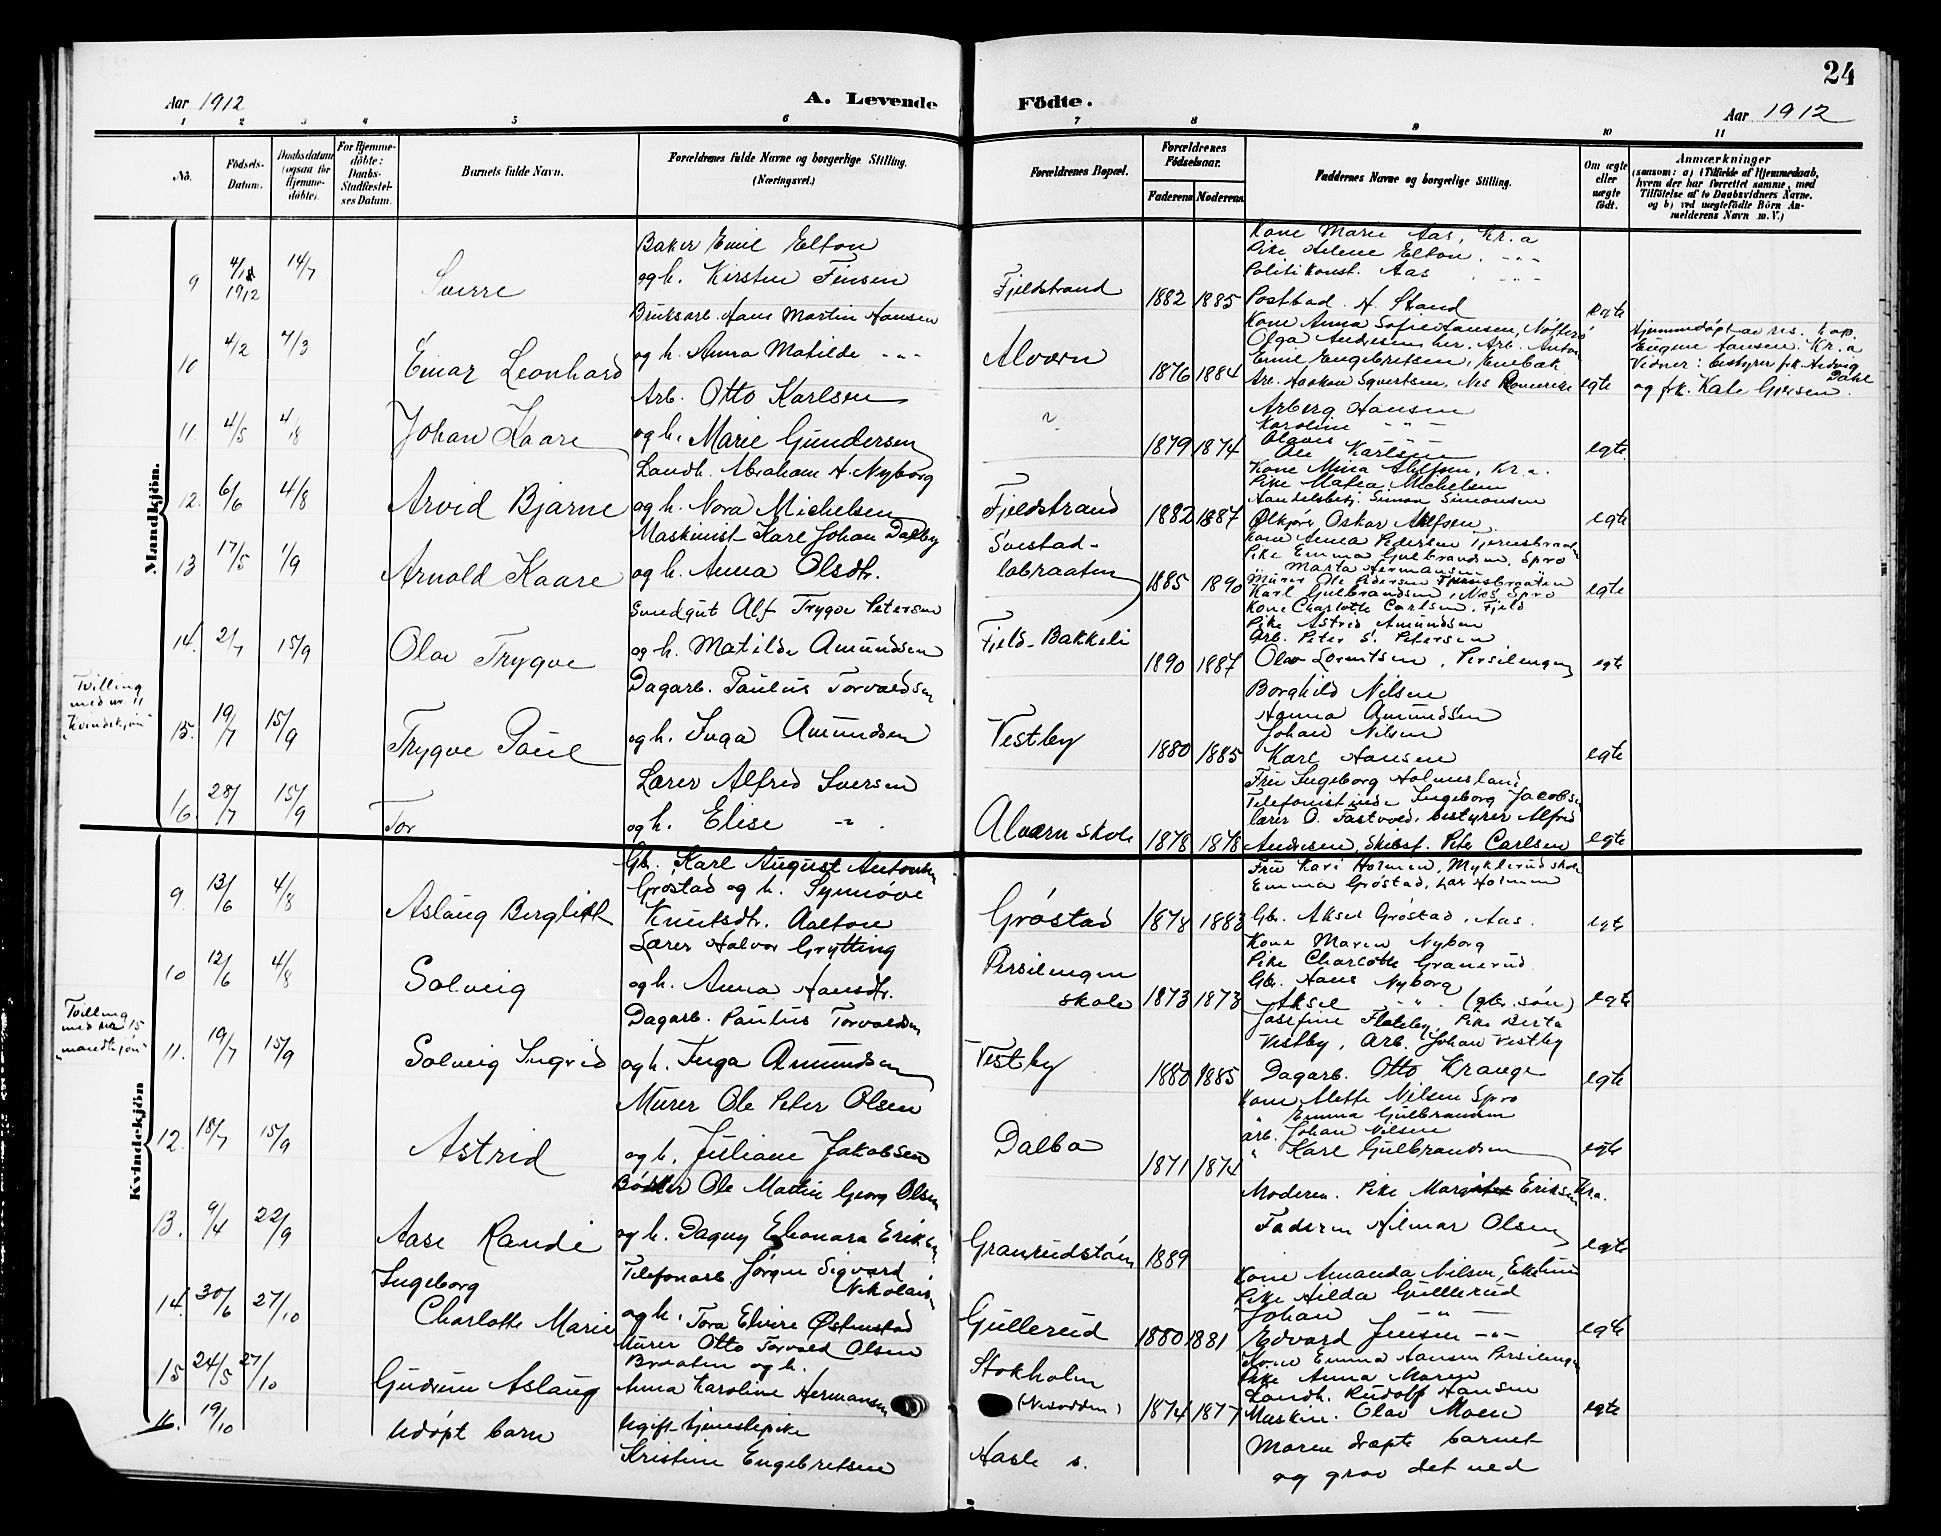 24
Aar 1912
A. Levende Födte.
Aar 1912
1 2 3 4 5 6 7 8 9 10 11
No.
Födsels-Datum.
Daabsdatum (ogsaa for Hjemmedöbte).
For Hjemmedöbte: Daabs-Stadfæstelses Datum.
Barnets fulde Navn.
Forældrenes fulde Navne og borgerlige Stilling.
(Næringsvei.)
Forældrenes Bopæl.
Forældrenes Födselsaar.
Faderens Moderens
Faddernes Navne og borgerlige Stilling.
Om ægte eller uægte födt.
Anmærkninger
(saasom: a) i Tilfælde af Hjemmedaab,
hvem der har forrettet samme, med
Tilföielse af to Daabsvidners Navne.
og b) ved uægtefödte Börn Anmelderens Navn m. V.)
Mandkjön.
9 1912 14/7 Sverre
Baker Emil Elton
og h. Kirsten Finsen
Fjeldstrand 1882 1885
Kone Marie Aas, Kr.a
Pike Helene Elton, -"-
Politikonst. Aas
Postbud. A. Strand
egte
10 4/2 4/3 Einar Leonhard
Bruksarb. Hans Martin Hansen
og h. Anna Matilde -"-
Alværn 1876 1884
Kone Anna Sofie Hansen, Nøtterø
Olga Andresen her, Arb. Anton
Emil Engebretsen, Enebak
Arb. Haakon Syvertsen, Nes Romerike
egte
Hjemmedøpt av res. kap.
Eugene Hansen. Kr.a
Vidner: bestyrer frk. Hedvig Dahl
og frk. Kate Iversen.
11. 4/5 4/8 Johan Kaare
Arb. Otto Karlsen
og h. Marie Gundersen
" 1879 1874
Arberg Hansen
Karoline -"-
Olaves
Ole Karlsen
egte
12. 6/6 4/8 Arvid Bjarne
Landh. Abraham A. Nyborg
og h. Nora Michelsen
Fjeldstrand 1882 1887
Kone Mina Alefsen, Kr.a.
Pike Matea Michelsen
Handelsbetj. Simon Simonsen
Ølkjører Oskar Alefsen
egte
13 17/5 1/9 Arnold Kaare
Maskinist Karl Johan Dalby
og h. Anna Olsdtr.
Svestad-labraaten 1885 1890
Kone Anna Pedersen Fjernsbraaten
Pike Emma Gulbrandsen, Spro
" Marta Hermansen
Murer Ole Pedersen Fjernsbraaten
Karl Gulbrandsen, Nes Spro
egte
14. 2/7 15/9 Olav Trygve
Svendgut Alf Trygve Petersen
og h. Matilde Amundsen
Fjeld-Bakkeli 1890 1887
Kone Charlotte Carlsen, Fjeld
Pike Astrid Amundsen
Arb. Peter S. Petersen
Olav Lorentsen, Persilengen
egte
Tvilling
med nr 11
"kvindekjøn"
15. 19/7 15/9 Trygve Paul
Dagarb. Paulus Torvaldsen
og h. Inga Amundsen
Vestby 1880 1885
Borghild Nilsen
Hanna Amundsen
Johan Nilsen
Karl Hansen
egte
16. 28/7 15/9 Tor
Lærer Alfred Iversen
og h. Elise -"-
Alværn skole 1878 1878
Fru Ingeborg Holmesland
Telefonistinde Ingeborg Jacobsen
lærer O. Tastved, bestyrer Alfred
Andresen, Skibsf. Peter Carlsen
egte
Kvindekjön
9. 13/6 4/8 Aslaug Bergliot
Gb. Karl August Antonsen
Grøstad og h. Synnøve
Knutsdtr. Aalton
Grøstad 1878 1883
Fru Kari Holmen, Myklerud skole
Emma Grøstad, Lars Holmen
Gb. Aksel Grøstad, Aas.
egte
10 12/6 4/8 Solveig
Lærer Halvor Grytting
og h. Anna Hansdtr.
Persilengen skole 1873 1873
Kone Maren Nyborg
Pike Charlotte Granerud
Gbr. Hans Nyborg
Aksel -"- (gbr. søn)
egte
Tvilling
med nr 15
"mandkjøn"
11. 19/7 15/9 Solveig Ingrid
Dagarb. Paulus Torvaldsen
og h. Inga Amundsen
Vestby 1880 1885
Josefine Flateby, Pike Berta
Vestby, Arb. Johan Vestby
Dagarb. Otto Krange
egte
12. 18/7 15/9 Astrid
Murer Ole Peter Olsen
og h. Juliane Jakobsen
Dalbo 1871 1874
Kone Mette Nilsen Spro
" Emma Gulbrandsen
arb. Johan Nilsen
" Karl Gulbrandsen
egte
13. 9/4 22/9 Aase Randi
Bødker Ole Martin Georg Olsen
og h. Dagny Eleonora Eriksen
Granerudstøen 1889
Moderen. Pike Margit Eriksen Kra.
Faderen Hilmar Olsen
egte
14. 30/6 27/10 Ingeborg
Charlotte Marie
Telefonarb. Jørgen Sigvard
Nikolaisen
og h. Tora Elvire Østenstad
Gullerud 1880 1881
Kone Amanda Nilsen,
Pike Hilda Gullerud
Johan -"-
Edvard Jensen -"-
egte
15 24/5 27/10 Gudrun Aslaug
Murer Otto Torvald Olsen
Braaten og h.
Anna Karoline Hermansen
Stokholm
(Nesodden) 1874 1877
Kone Emma Hansen Persilengen
Pike Anna Moren
Landh. Rudolf Hansen
Maskin. Olav Moen
egte
16. 19/10 Udøpt barn
Ugift tjenestepike
Kristine Engebretsen
Hasle s.
Moren dræpte barnet
og grov det ned